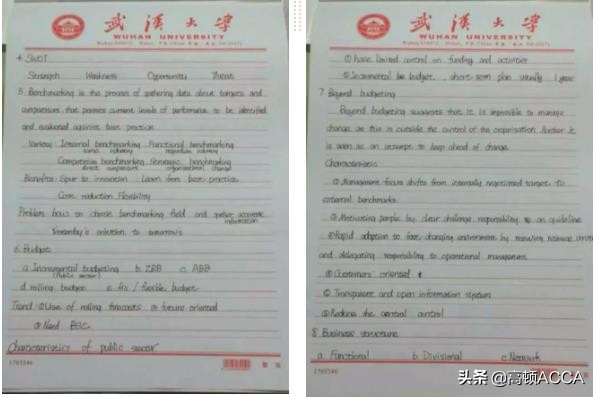 武漢大學
WUHAN UNIVERSITY
4. SWOT
Strength Weakness Opportunity Threat
5. Benchmarking is the process of gathering data about targets and
comparators, that permits current levels of performance to be identified
and evaluated against best practice
Variety: Internal benchmarking Functional benchmarking
same industry
Competitive benchmarking Strategic benchmarking
direct competitors organizational change
Benefits: Spur to innovation Learn from best practice
Cost reduction Flexibility
Problem: how to choose benchmarking field and gather accurate
information
Yesterday's solution to tomorrow's
6. Budget
a. Incremental budgeting b. ZBB c. ABB
(Public sector)
d. rolling budget e. fix / flexible budget
Trend: ① Use of rolling forecasts ② future oriented
③ Need BSC
Characteristics of public sector
1703346
武漢大學
WUHAN UNIVERSITY
① have limited control on funding and activities
② Incremental budget, short-term plan usually 1 year
7. Beyond budgeting
Beyond budgeting suggests that it is impossible to manage
change as this is outside the control of the organisation. Rather it
is seen as an attempt to keep ahead of change.
Characteristic:
① Management focus shifts from internally negotiated target to
external benchmarks
② Motivating people by clear challenge, responsibility & an guideline
③ Rapid adaption to fast changing environment by
and delegating responsibility to operational management
④ Customers' oriented
⑤ Transparent and open information system
⑥ Reduce the central control
8. Business structure
a. Functional b. Divisional c. Network
1703346
头条 @高顿ACCA